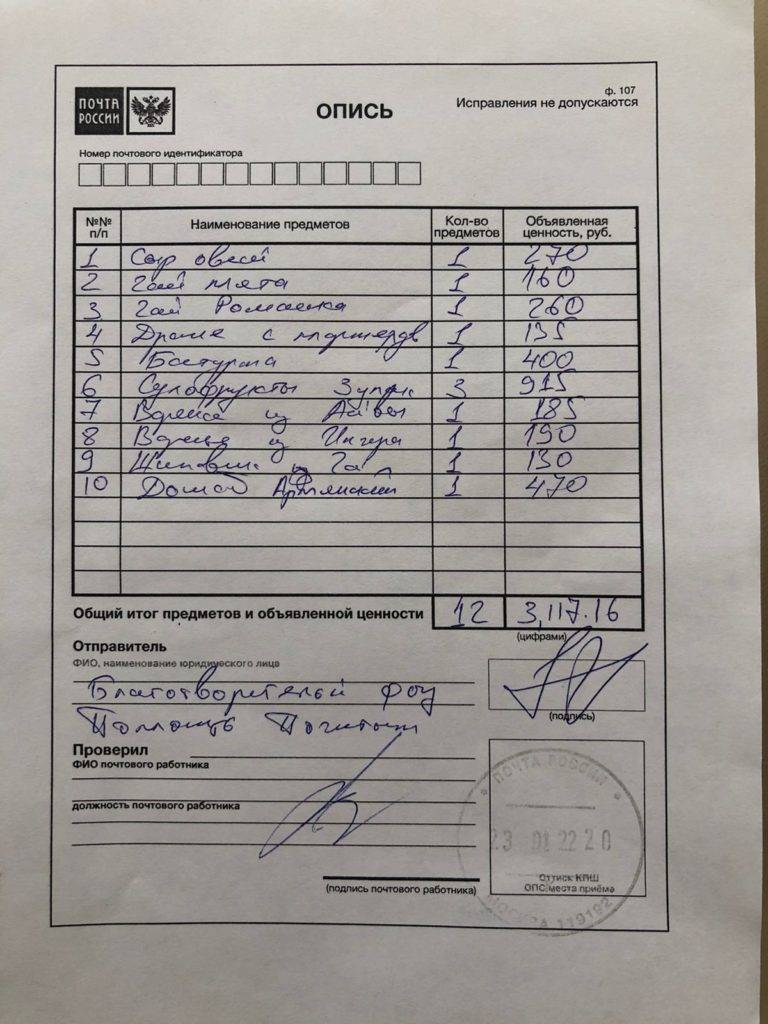 ПОЧТА РОССИИ
ОПИСЬ
ф. 107
Исправления не допускаются
Номер почтового идентификатора
№№ п/п Наименование предметов Кол-во предметов Объявленная ценность, руб.
1 Сыр 1 270
2 Чай мята 1 160
3 Чай Ромашка 1 260
4 Драже с 1 135
5 Бастурма 1 400
6 Сухофрукты 3 915
7 из Айвы 1 185
8 из Инжира 1 190
9 1 130
10 Армянский 1 470
Общий итог предметов и объявленной ценности 12 3,117.16
(цифрами)
Отправитель
ФИО, наименование юридического лица
(подпись)
Проверил
ФИО почтового работника
должность почтового работника
(подпись почтового работника)
ПОЧТА РОССИИ
23 01 22 20
Оттиск КПШ
ОПС места приёма
МОСКВА 119192